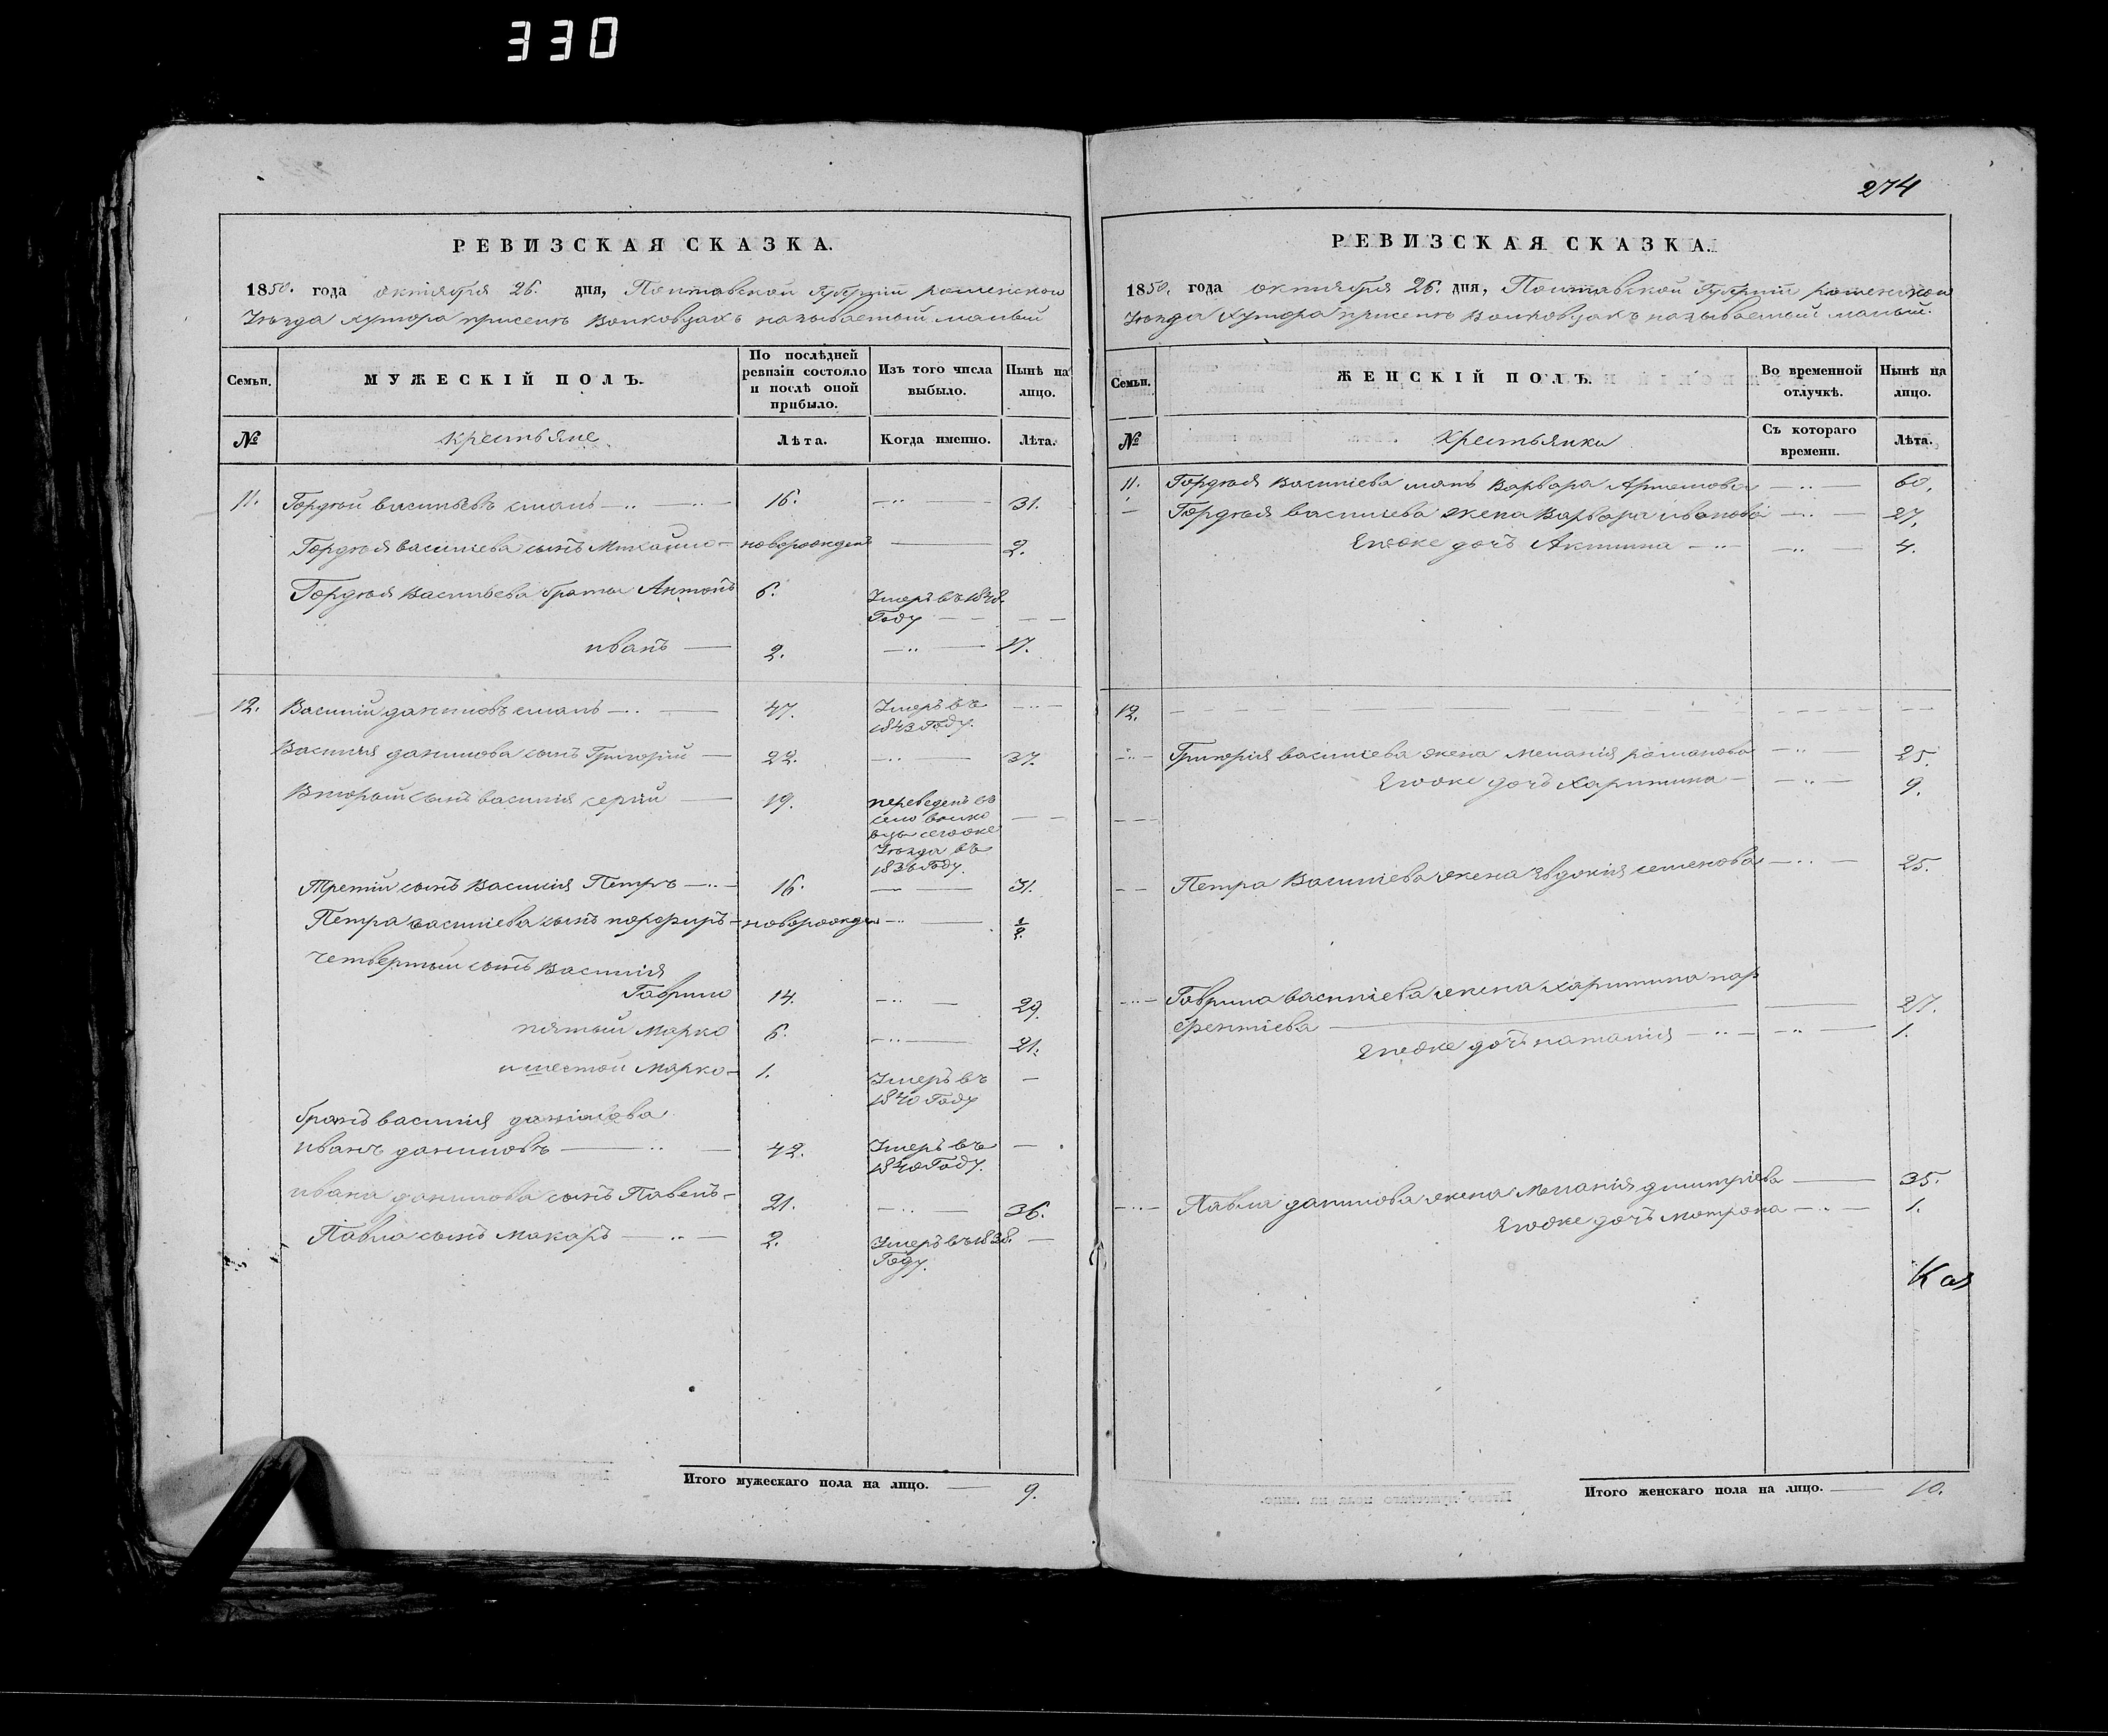 330
РЕВИЗСКАЯ СКАЗКА.
1850. года октября 26. дня, Полтавской Губернiи роменского
Уѣзда хутора присемъ Волковцахъ называемый малый
Семьи.
МУЖЕСКІЙ ПОЛЪ.
По послѣдней ревизіи состояло и послѣ оной прибыло.
Изъ того числа выбыло.
Нынѣ на лицо.
№
крестьяне
Лѣта.
Когда именно.
Лѣта.
11. Гордѣй васильевъ 16. 31.
Гордѣя василиева сынъ Михайло новорожденъ 2.
Гордѣя Васильева браты Антонъ 6. Умеръ въ 1848. Году
иванъ 2. 17.
12. Василий даниловъ 47. Умеръ въ 1843 Году.
Василия данилова сынъ Григорий 22. 37.
Вторый сынъ василия сергий 19. переведенъ въ село волковцы сегоже Уѣзда въ 1836 Году.
Третий сынъ Василия Петръ 16. 31.
Петра василиева сынъ порфиръ новорожден 1/2.
четвертый сынъ Василия
Гаврило 14. 29.
пятый Марко 6. 21.
и шестой Марко 1. Умеръ въ 1840 Году
братъ василия данилова
иванъ даниловъ 42. Умеръ въ 1840 Году.
ивана данилова сынъ Павелъ 21. 36.
Павла сынъ макаръ 2. Умеръ въ 1838. Году.
Итого мужескаго пола на лицо. 9.
274
РЕВИЗСКАЯ СКАЗКА.
1850. года октября 26. дня, Полтавской Губернiи роменского
Уѣзда хутора присемъ Волковцахъ называемый малый.
Семьи.
ЖЕНСКІЙ ПОЛЪ.
Во временной отлучкѣ.
Нынѣ на лицо.
№
Крестьянки
Съ котораго времени.
Лѣта.
11. Гордѣя Василиева мать Варвара Артемова 60.
Гордѣя василиева жена Варвара иванова 27.
Егоже дочъ Акилина 4.
12.
Григория василиева жена меланія романова 25.
Егоже дочъ харитина 9.
Петра Василиева жена Евдокия семенова 25.
Гаврила василиева жена харитина пар
фентіева 27.
Егоже дочъ наталия 1.
Павла данилова жена Меланія димитріева 35.
Егоже дочъ мотрона 1.
Каз
Итого женскаго пола на лицо. 10.